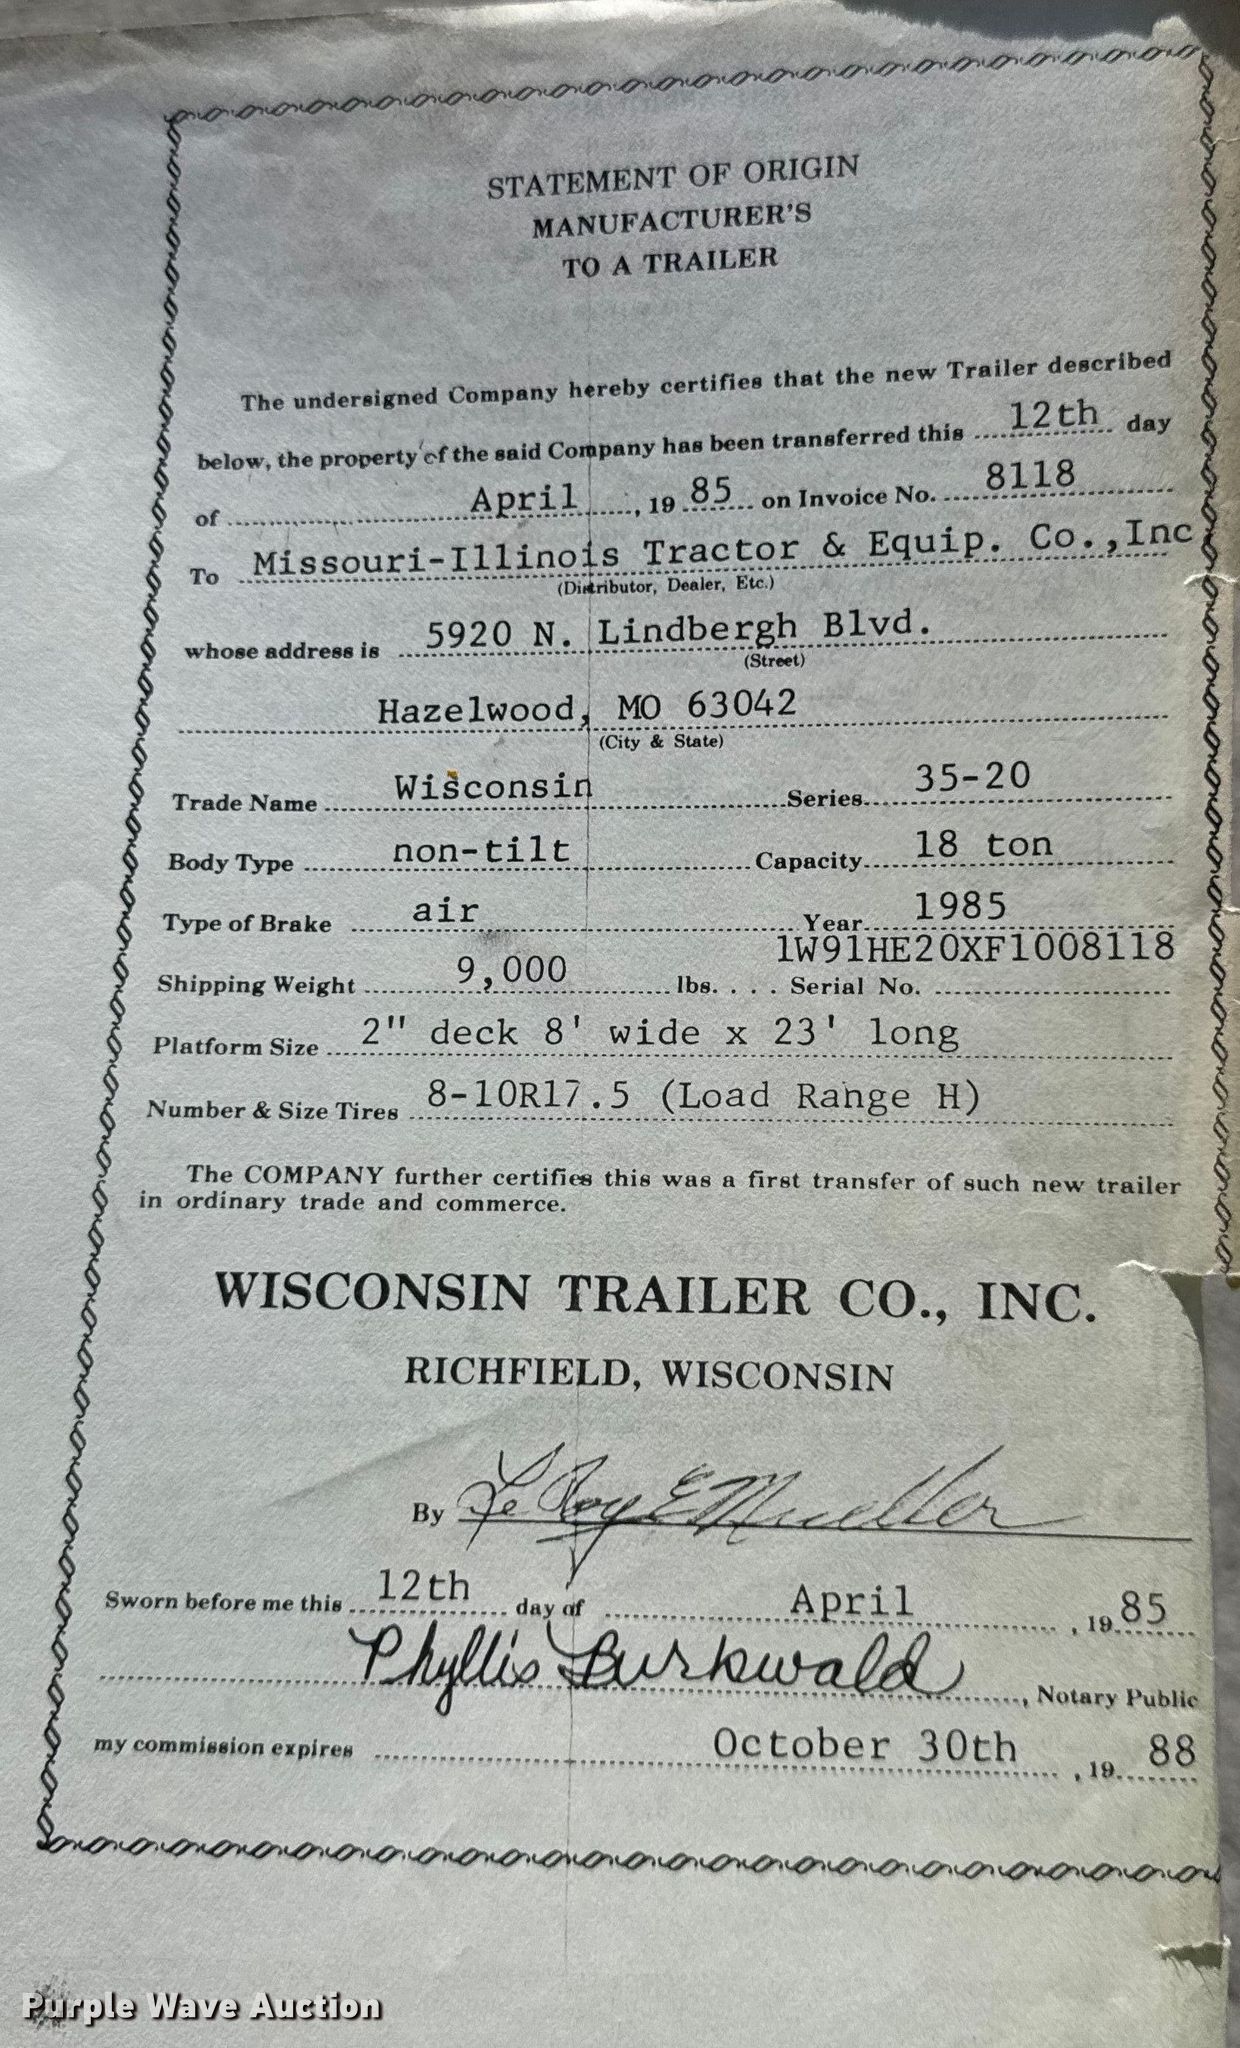 STATEMENT OF ORIGIN
MANUFACTURER'S
TO A TRAILER
The undersigned Company hereby certifies that the new Trailer described
below, the property of the said Company has been transferred this 12th day
of April, 19 85 on Invoice No. 8118
To Missouri-Illinois Tractor & Equip. Co.,Inc
(Distributor, Dealer, Etc.)
whose address is 5920 N. Lindbergh Blvd.
(Street)
Hazelwood, MO 63042
(City & State)
Trade Name Wisconsin Series 35-20
Body Type non-tilt Capacity 18 ton
Type of Brake air Year 1985
Shipping Weight 9,000 lbs. . . . Serial No. 1W91HE20XF1008118
Platform Size 2" deck 8' wide x 23' long
Number & Size Tires 8-10R17.5 (Load Range H)
The COMPANY further certifies this was a first transfer of such new trailer
in ordinary trade and commerce.
WISCONSIN TRAILER CO., INC.
RICHFIELD, WISCONSIN
By LeRoy E Mueller
Sworn before me this 12th day of April, 19 85
Phyllis Burkwald, Notary Public
my commission expires October 30th, 19 88
Purple Wave Auction